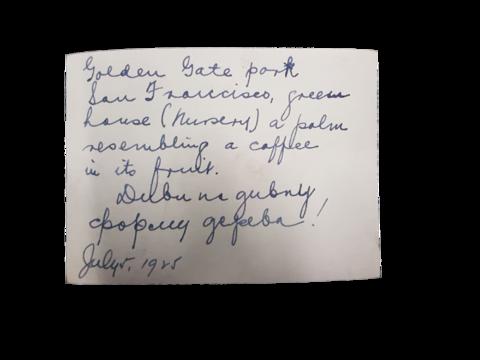 Golden Gate park
San Francisco, green
house (Nursery) a palm
resembling a coffee
in its fruit.
Диви на дивну
форму дерева!
July 5, 1925